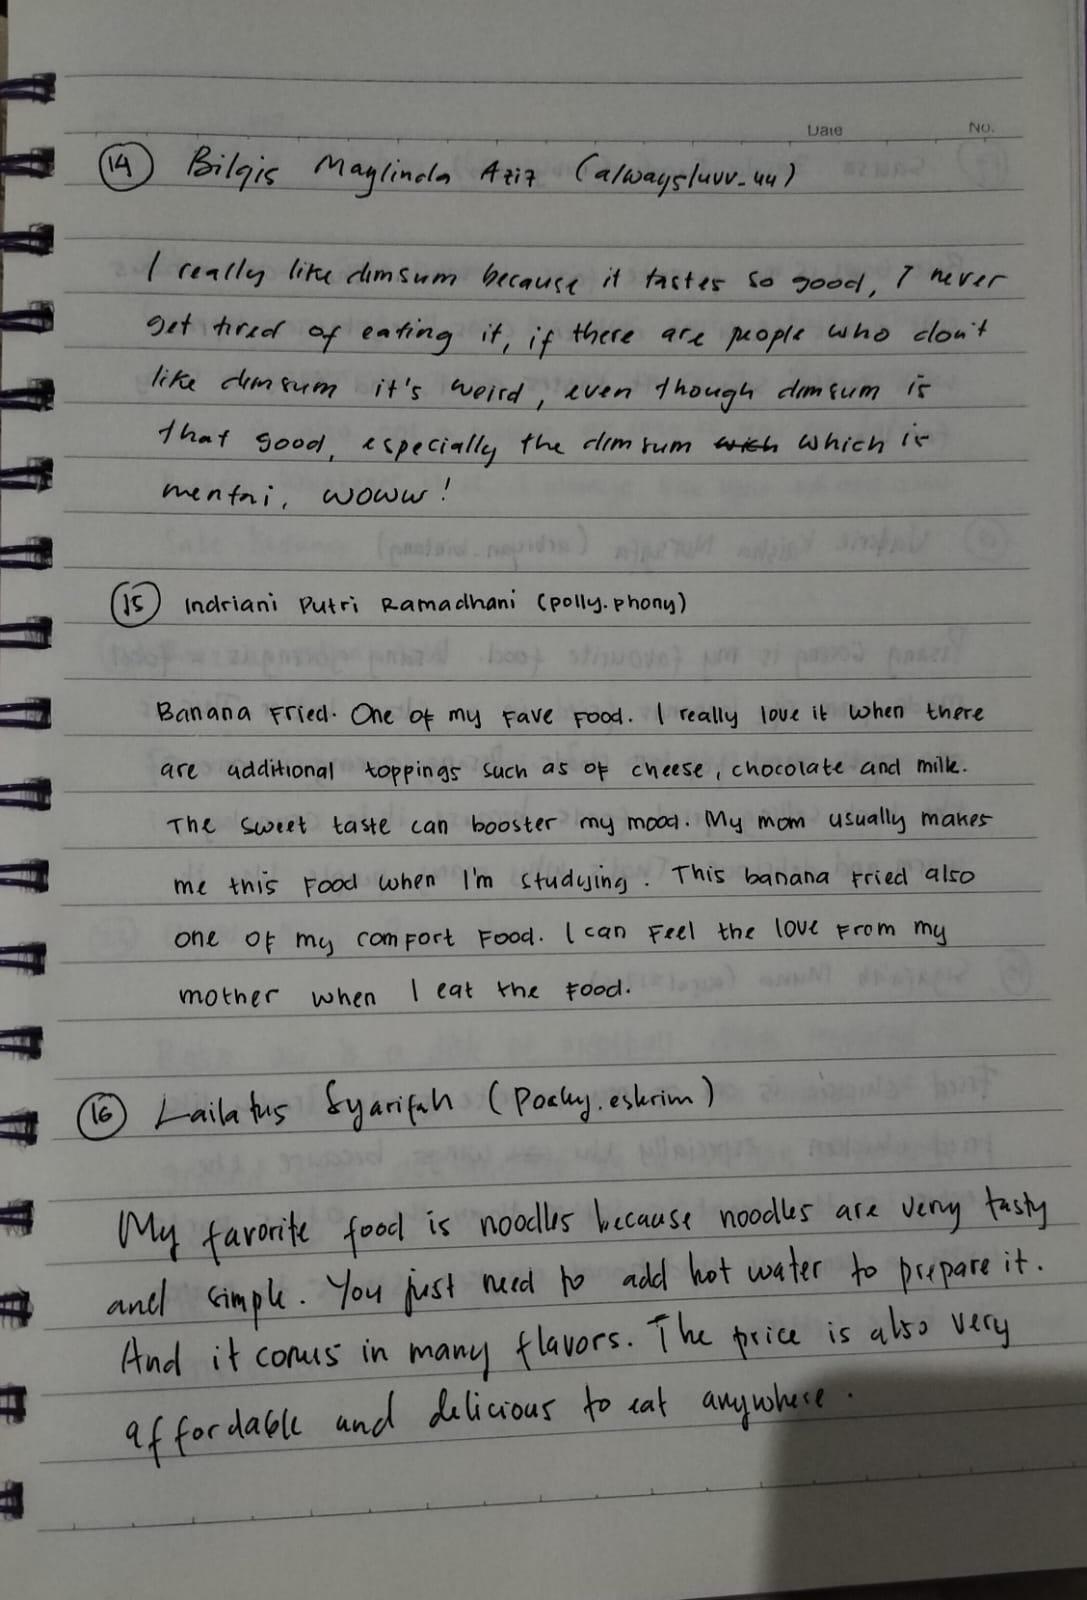 Date No.
14 Bilqis Maylinda Aziz (alwaysluvv_uu)
I really like dimsum because it tastes so good, I never
get tired of eating it, if there are people who don't
like dimsum it's weird, even though dimsum is
that good, especially the dimsum wich which is
mentai, woww!
15 Indriani Putri Ramadhani (polly.phony)
Banana Fried. One of my Fave Food. I really love it when there
are additional toppings such as of cheese, chocolate and milk.
The sweet taste can booster my mood. My mom usually makes
me this Food when I'm studying. This banana Fried also
one of my comfort Food. I can Feel the love From my
mother when I eat the Food.
16 Lailatus Syarifah (Pocky.eskrim)
My favorite food is noodles because noodles are very tasty
and simple. You just need to add hot water to prepare it.
And it comes in many flavors. The price is also very
affordable and delicious to eat anywhere.